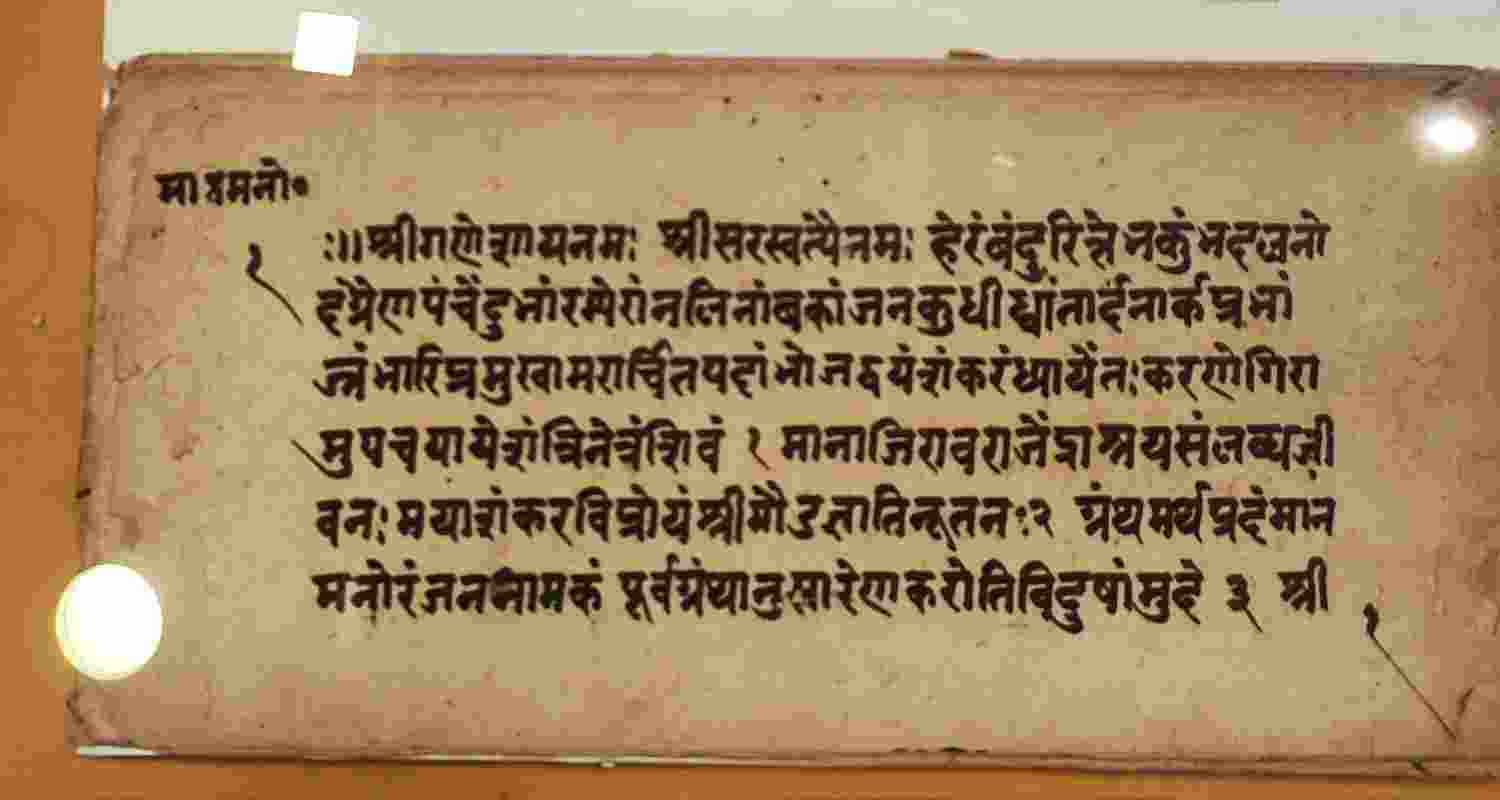 मानमनो०
१
:॥श्रीगणेशायनमः श्रीसरस्वत्यैनमः हेरंबंदुरितेभकुंभदलनो
पंचैदुभांरमेरांनलिनांबकांजनकुधीध्वांतार्दनार्कप्रभां
जंभारिप्रमुखामरार्चितपदांभोजद्वयंशंकरंध्यायेंतःकरणेगिरा
मुपचयायेशंत्रिनेत्रंशिवं १ मानाजिरावराजेंद्राश्रयसंलब्धजी
वनः मयाशंकरविप्रोयंश्रीमौढज्ञातिनूतनः२ ग्रंथमर्थप्रदंमान
मनोरंजननामकं पूर्वग्रंथानुसारेणकरोतिविदुषांमुदे ३ श्री
१